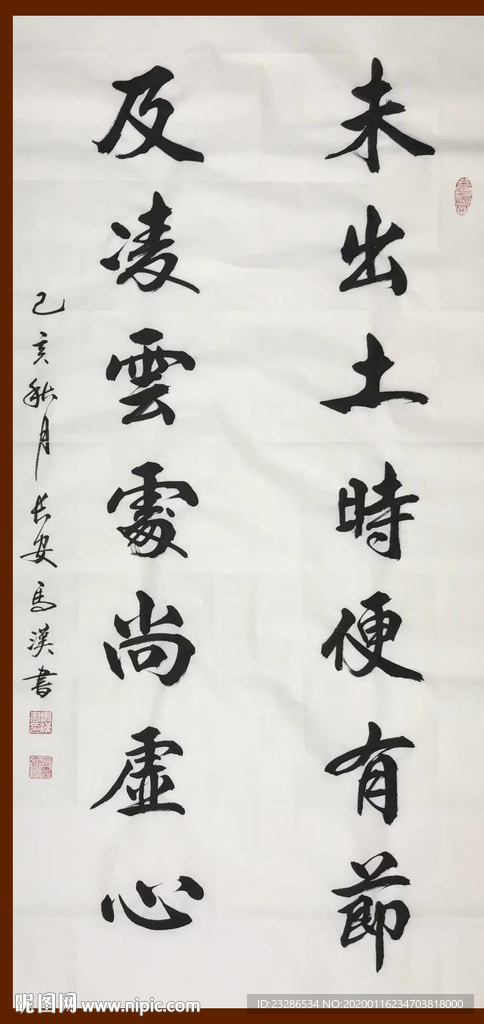 未出土時便有節
及凌雲處尚虛心
己亥秋月長安馬漢書
昵图网 www.nipic.com
ID:23286534 NO:20200116234703818000